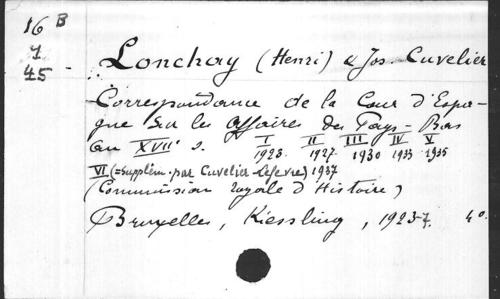 16 B
1
45
Lonchay (Henri) & Jos. Cuvelier
Correspondance de la Cour d'Espa-
gne sur les Affaires des Pays-Bas
au XVIIe s. I 1923. II 1927. III 1930 IV 1933 V 1935
VI (=supplém. par Cuvelier-Lefevre) 1937
(Commission royale d'Histoire)
Bruxelles, Kiessling, 1923-7. 4o.